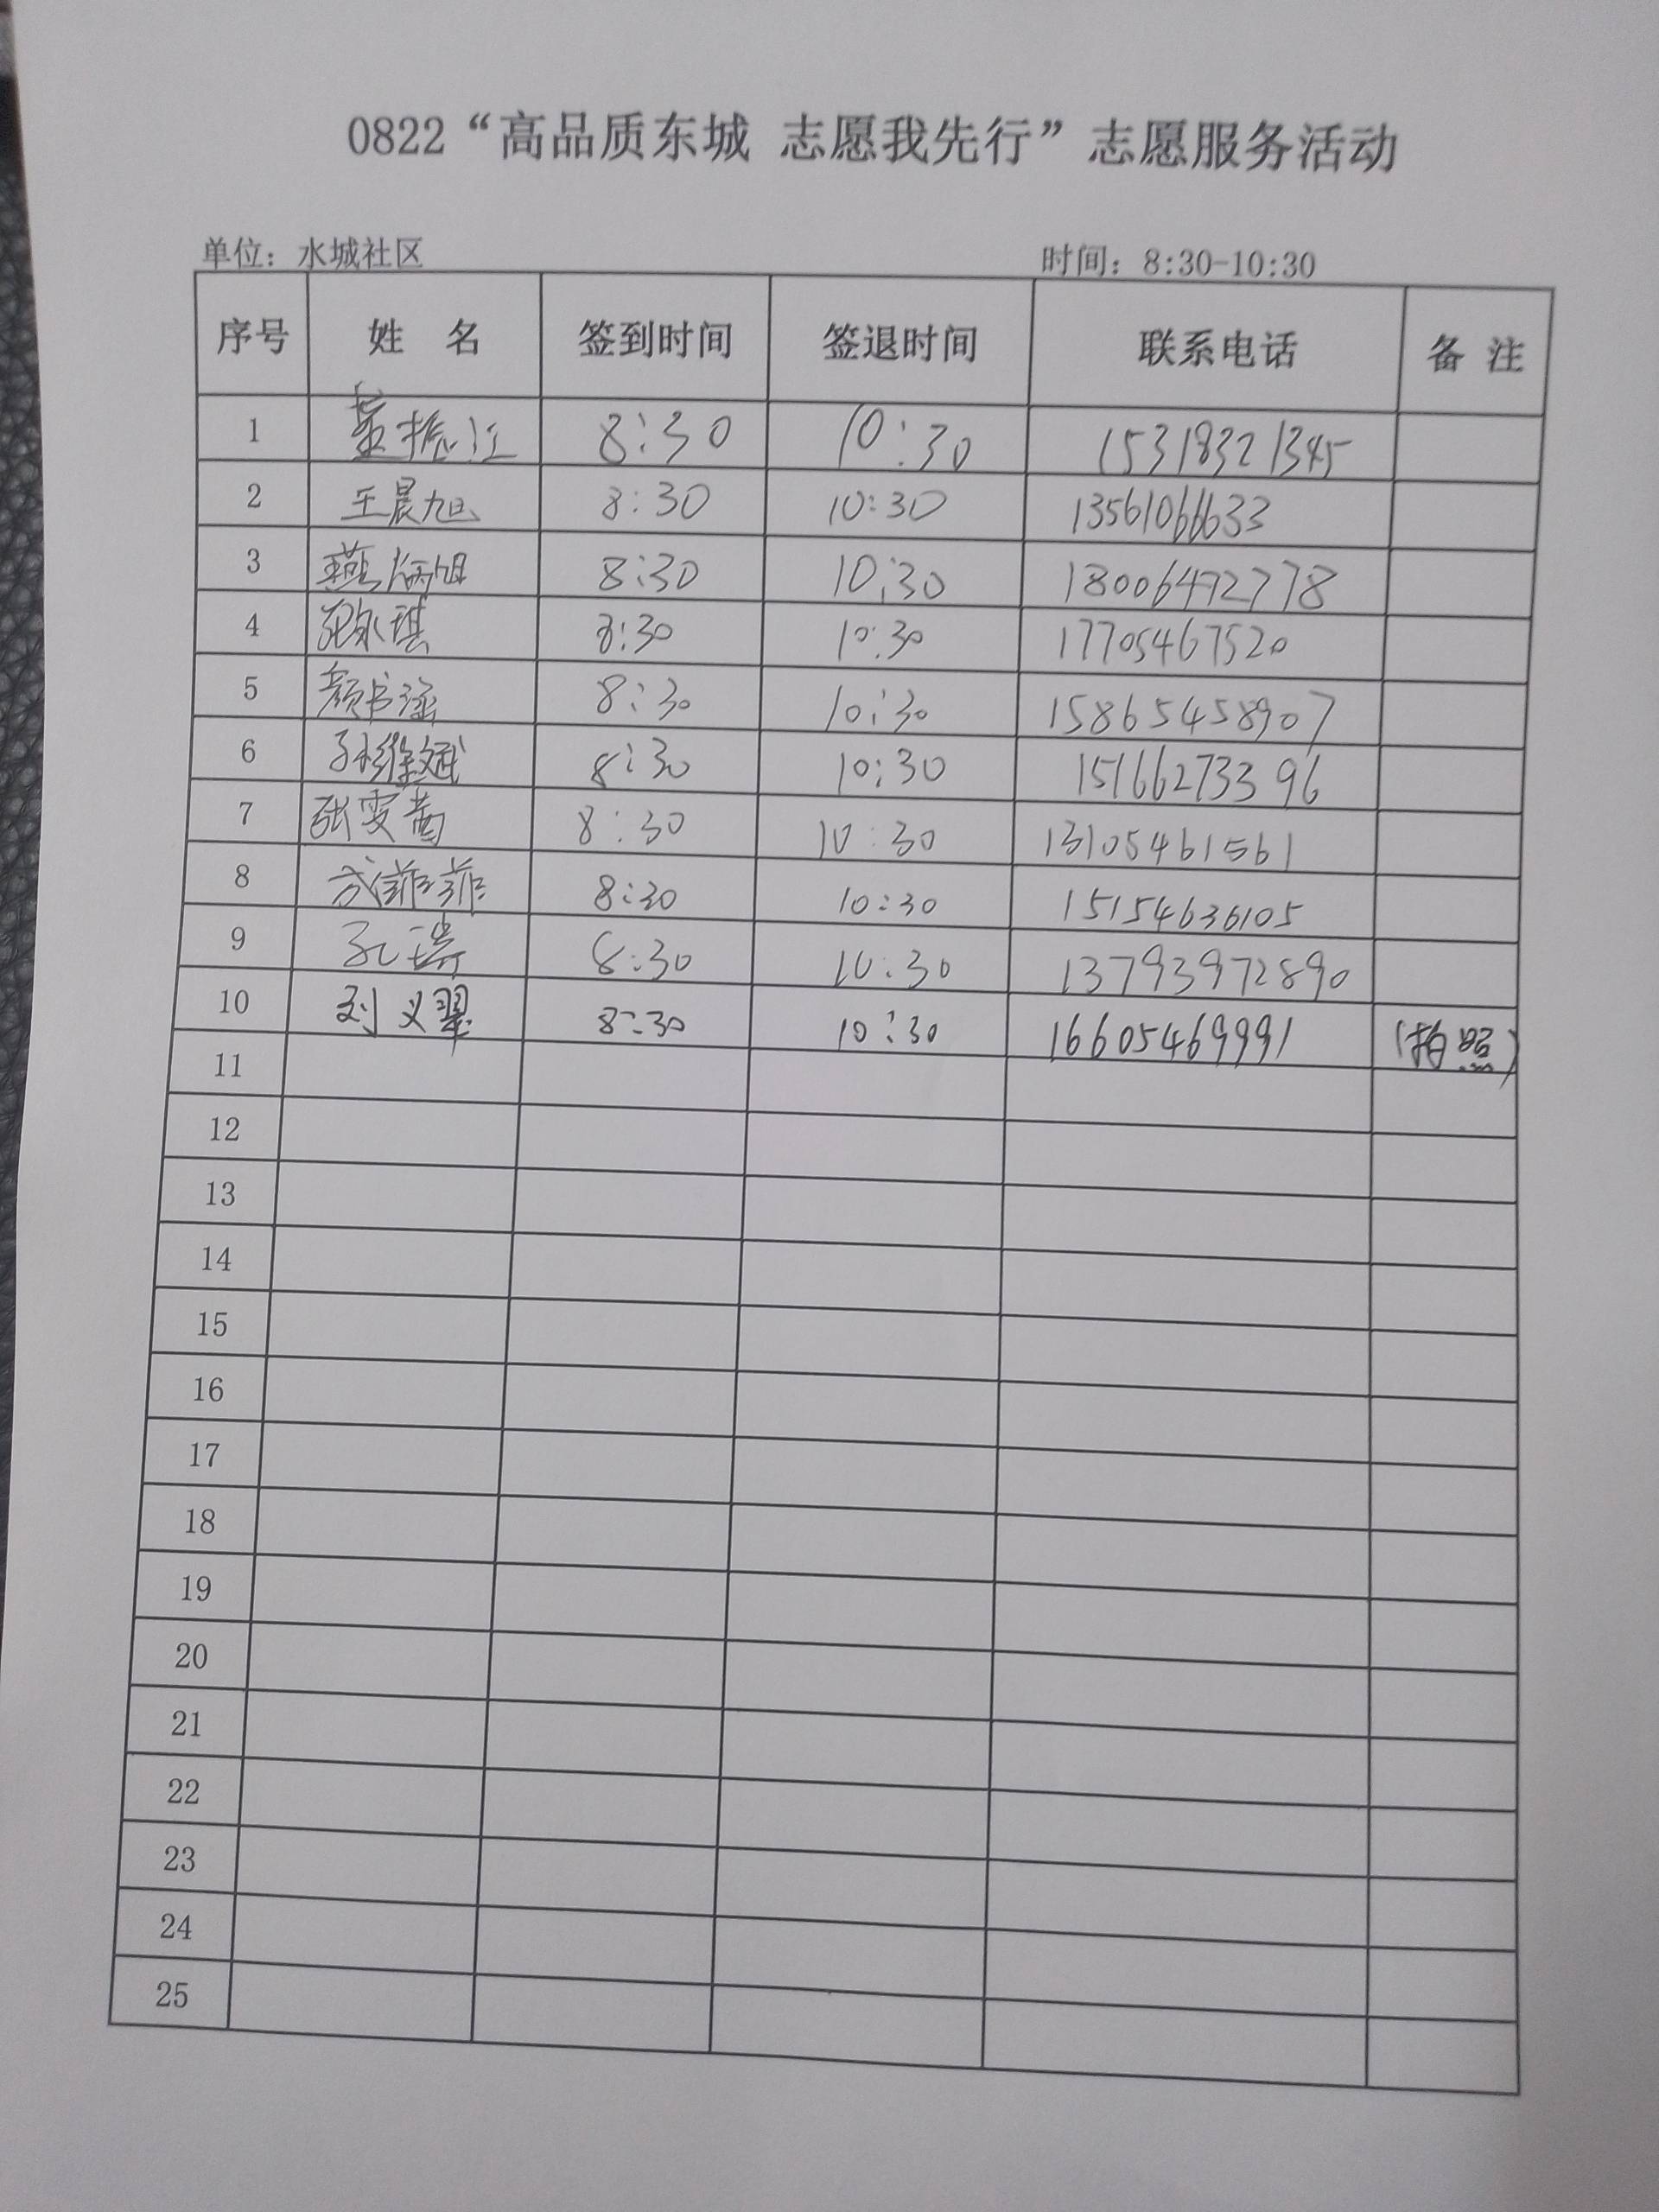 0822“高品质东城 志愿我先行”志愿服务活动
单位：水城社区 时间：8:30-10:30
序号 姓 名 签到时间 签退时间 联系电话 备 注
1 董振江 8:30 10:30 15318321345
2 王晨旭 8:30 10:30 13561066633
3 燕炳旭 8:30 10:30 18006472778
4 8:30 10:30 17705467520
5 颜书涵 8:30 10:30 15865458907
6 孙维斌 8:30 10:30 15166273396
7 张雯茜 8:30 10:30 13105461561
8 成菲菲 8:30 10:30 15154636105
9 孔 8:30 10:30 13793972890
10 刘义翠 8:30 10:30 16605469991 (拍照)
11
12
13
14
15
16
17
18
19
20
21
22
23
24
25